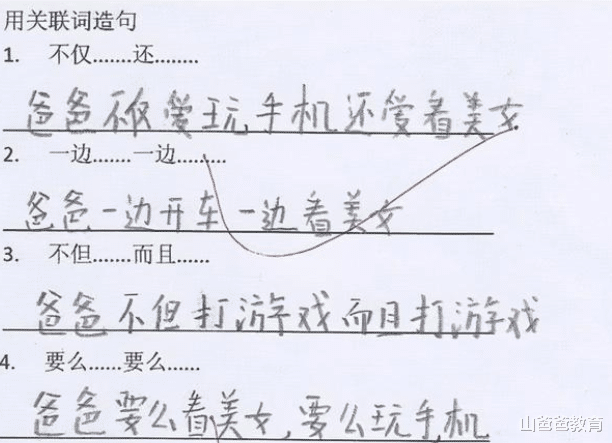 用关联词造句
1. 不仅.......还........
爸爸不仅爱玩手机还爱看美女
2. 一边.......一边.........
爸爸一边开车一边看美女
3. 不但.......而且......
爸爸不但打游戏而且打游戏
4. 要么......要么......
爸爸要么看美女,要么玩手机.
山爸爸教育